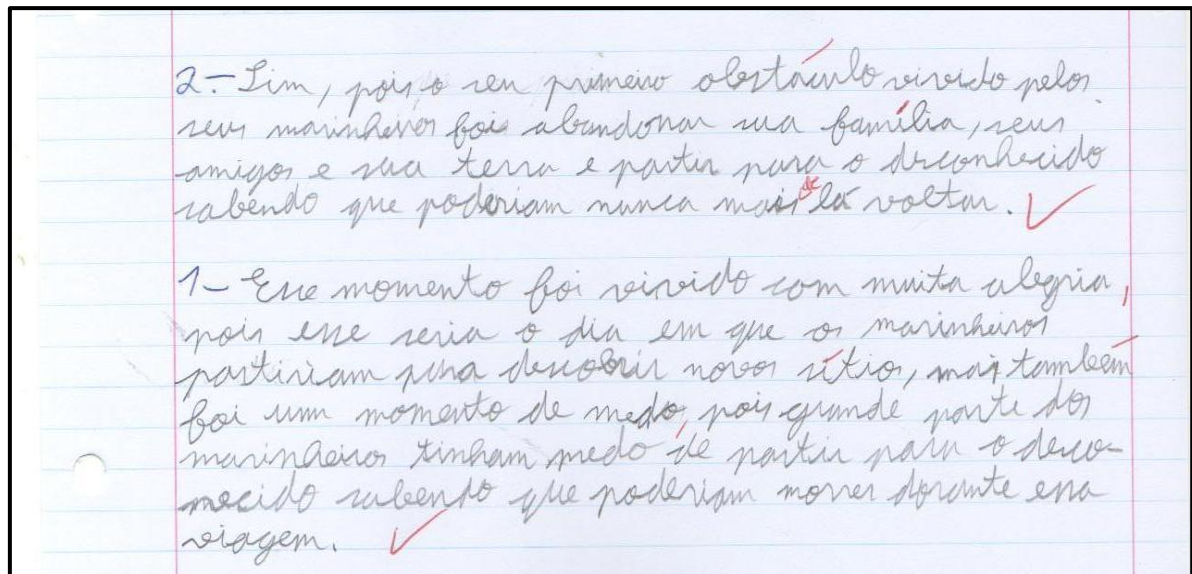 2.- Sim, pois o seu primeiro obstáculo vivido pelos
seus marinheiros foi abandonar sua família, seus
amigos e sua terra e partir para o desconhecido
sabendo que poderiam nunca mais de lá voltar.
1- Esse momento foi vivido com muita alegria,
pois esse seria o dia em que os marinheiros
partiriam para descobrir novos sítios, mas também
foi um momento de medo, pois grande parte dos
marinheiros tinham medo de partir para o desco-
necido sabendo que poderiam morrer dorante essa
viagem.